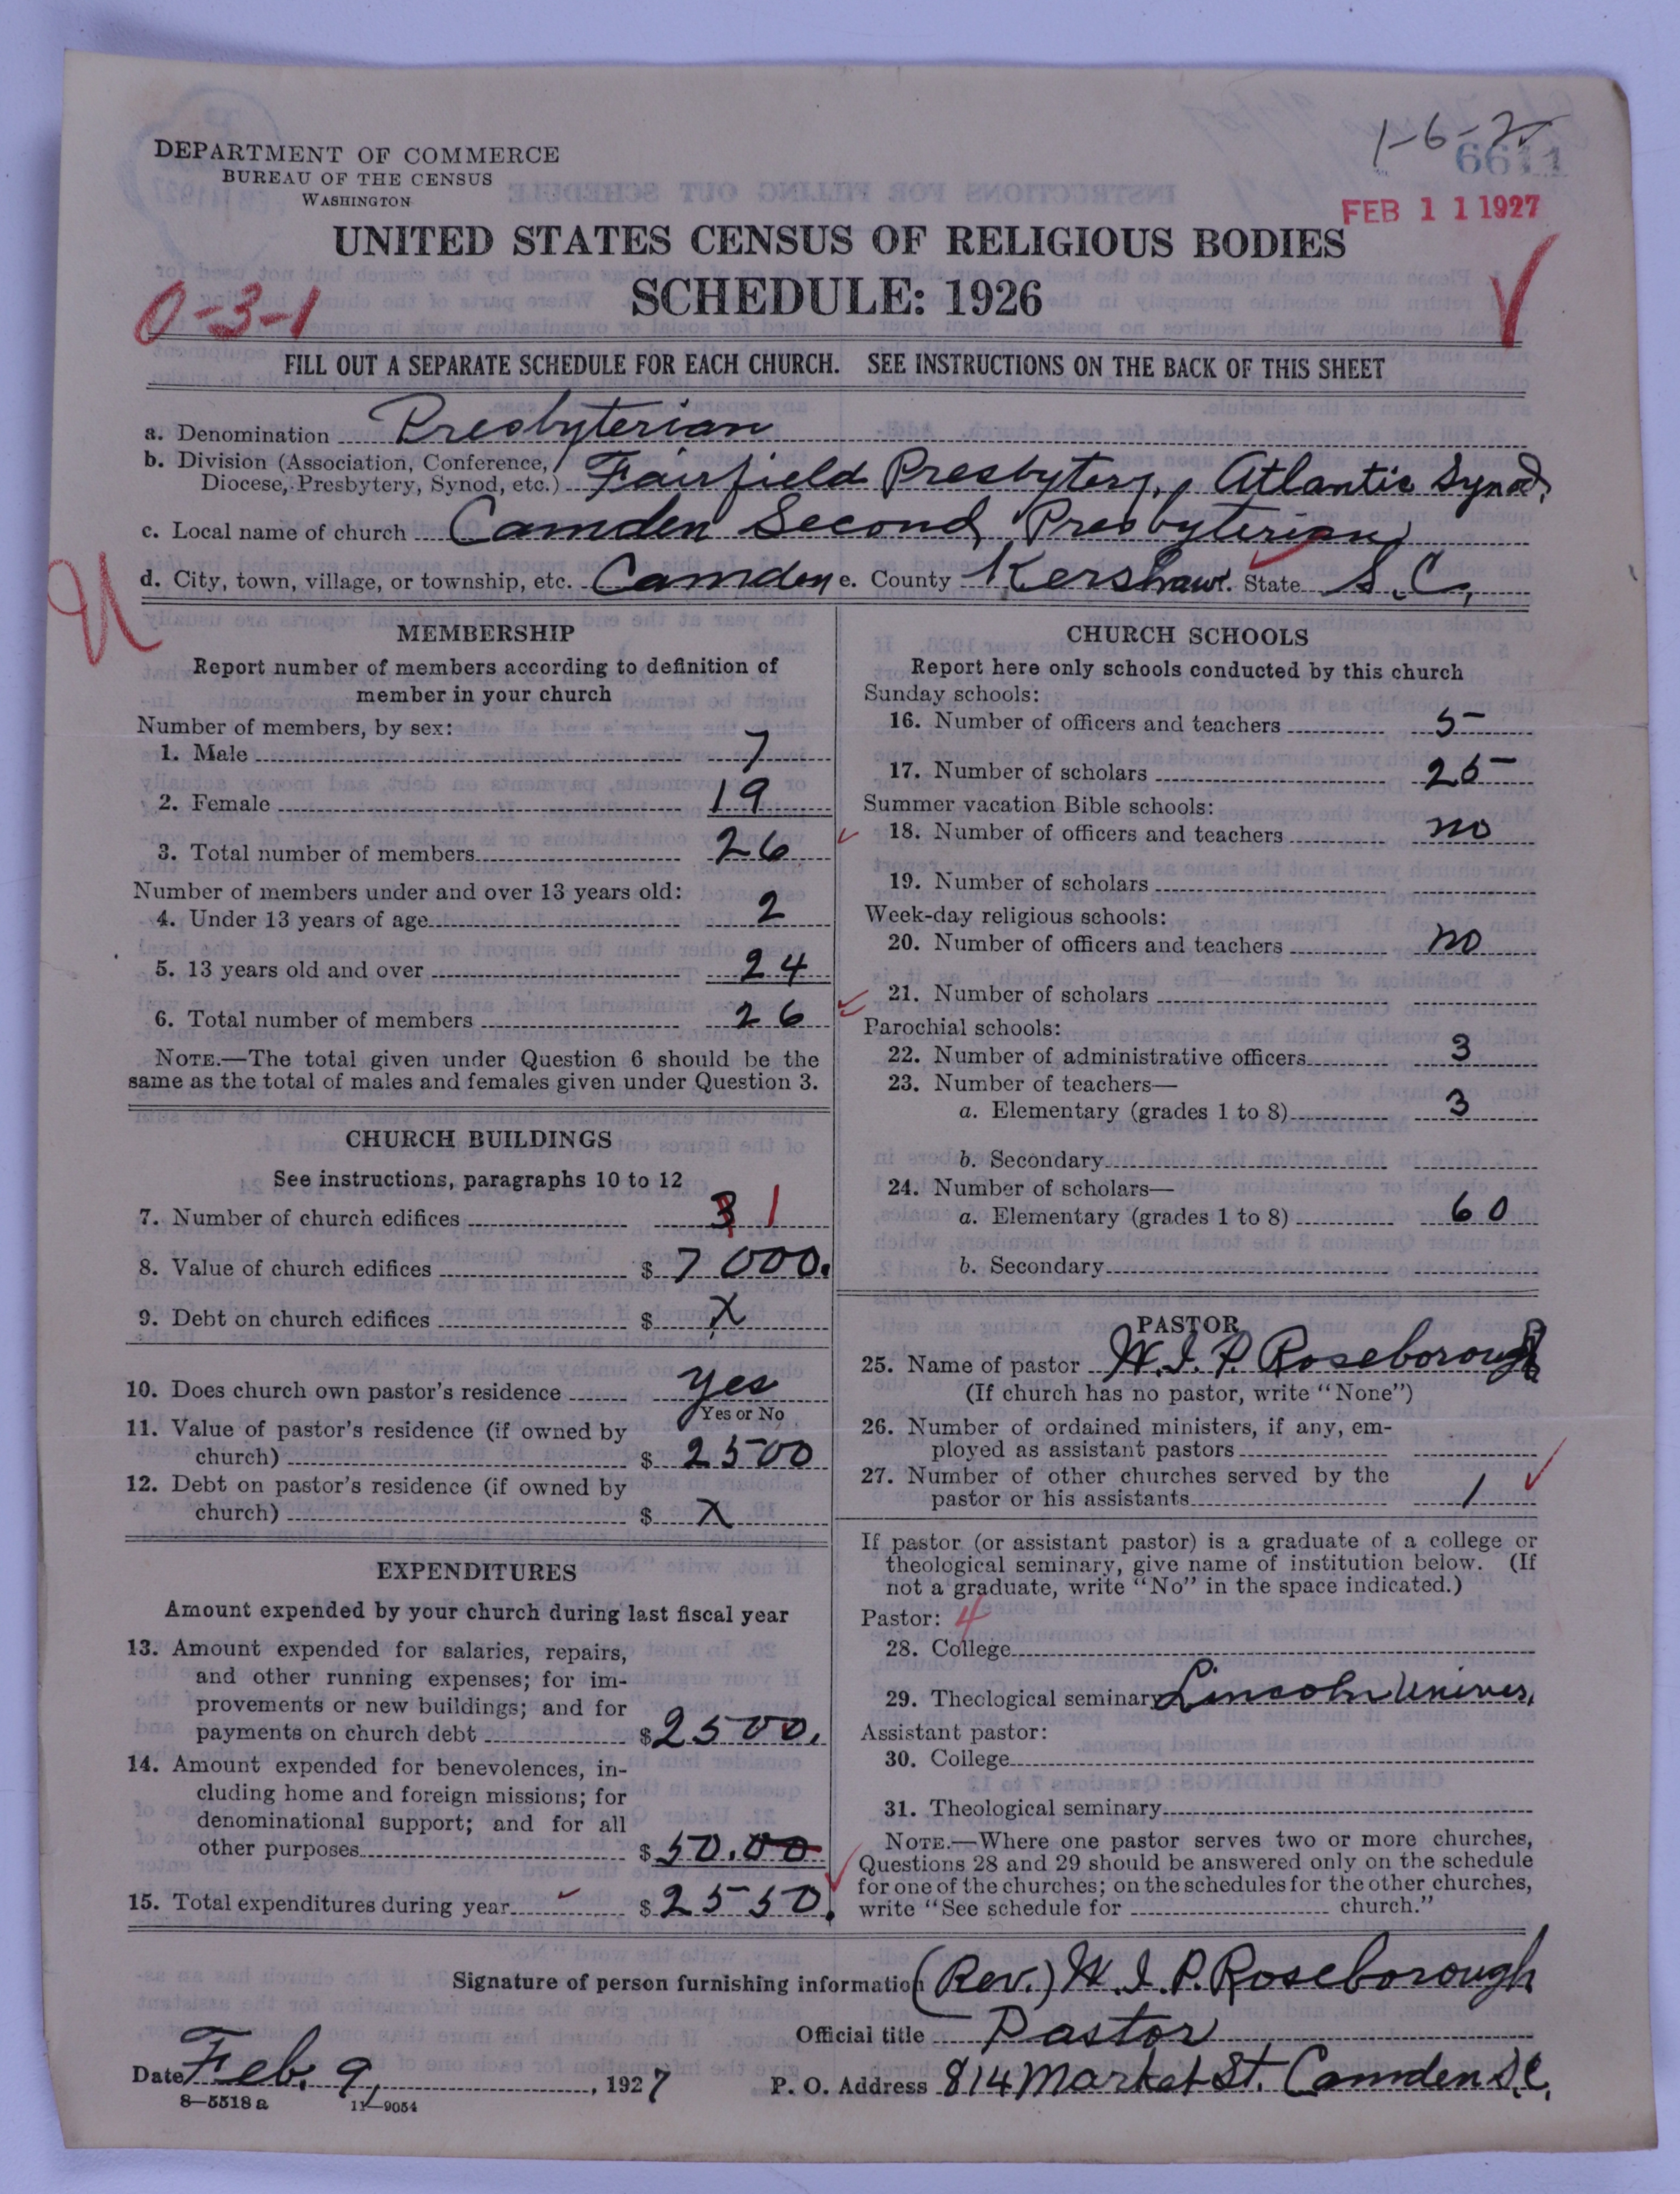 DEPARTMENT OF COMMERCE
BUREAU OF THE CENSUS
WASHINGTON
1-6-2
6611
FEB 11 1927
UNITED STATES CENSUS OF RELIGIOUS BODIES
SCHEDULE: 1926
0-3-1
FILL OUT A SEPARATE SCHEDULE FOR EACH CHURCH. SEE INSTRUCTIONS ON THE BACK OF THIS SHEET
a. Denomination Presbyterian
b. Division (Association, Conference,
Diocese, Presbytery, Synod, etc.) Fairfield Presbytery, Atlantic Synod,
c. Local name of church Camden Second Presbyterian
d. City, town, village, or township, etc. Camden e. County Kershaw. State S.C,
U
MEMBERSHIP
Report number of members according to definition of
member in your church
Number of members, by sex:
1. Male 7
2. Female 19
3. Total number of members 26
Number of members under and over 13 years old:
4. Under 13 years of age 2
5. 13 years old and over 24
6. Total number of members 26
NOTE.—The total given under Question 6 should be the
same as the total of males and females given under Question 3.
CHURCH BUILDINGS
See instructions, paragraphs 10 to 12
7. Number of church edifices 3 1
8. Value of church edifices $ 7 000.
9. Debt on church edifices $ X
10. Does church own pastor's residence yes
Yes or No
11. Value of pastor's residence (if owned by
church) $ 2500
12. Debt on pastor's residence (if owned by
church) $ X
EXPENDITURES
Amount expended by your church during last fiscal year
13. Amount expended for salaries, repairs,
and other running expenses; for im-
provements or new buildings; and for
payments on church debt $ 2500.
14. Amount expended for benevolences, in-
cluding home and foreign missions; for
denominational support; and for all
other purposes $ 50.00
15. Total expenditures during year $ 2550.
CHURCH SCHOOLS
Report here only schools conducted by this church
Sunday schools:
16. Number of officers and teachers 5
17. Number of scholars 25
Summer vacation Bible schools:
18. Number of officers and teachers no
19. Number of scholars
Week-day religious schools:
20. Number of officers and teachers no
21. Number of scholars
Parochial schools:
22. Number of administrative officers 3
23. Number of teachers—
a. Elementary (grades 1 to 8) 3
b. Secondary
24. Number of scholars—
a. Elementary (grades 1 to 8) 60
b. Secondary
PASTOR
25. Name of pastor W.I.P. Roseborough
(If church has no pastor, write "None")
26. Number of ordained ministers, if any, em-
ployed as assistant pastors
27. Number of other churches served by the
pastor or his assistants 1
If pastor (or assistant pastor) is a graduate of a college or
theological seminary, give name of institution below. (If
not a graduate, write "No" in the space indicated.)
Pastor: 4
28. College
29. Theological seminary Lincoln Univers,
Assistant pastor:
30. College
31. Theological seminary
NOTE.—Where one pastor serves two or more churches,
Questions 28 and 29 should be answered only on the schedule
for one of the churches; on the schedules for the other churches,
write "See schedule for church."
Signature of person furnishing information (Rev.) W.I.P. Roseborough
Official title Pastor
Date Feb. 9, 1927 P. O. Address 814 Market St. Camden S.C.
8—5518 a 11—9054